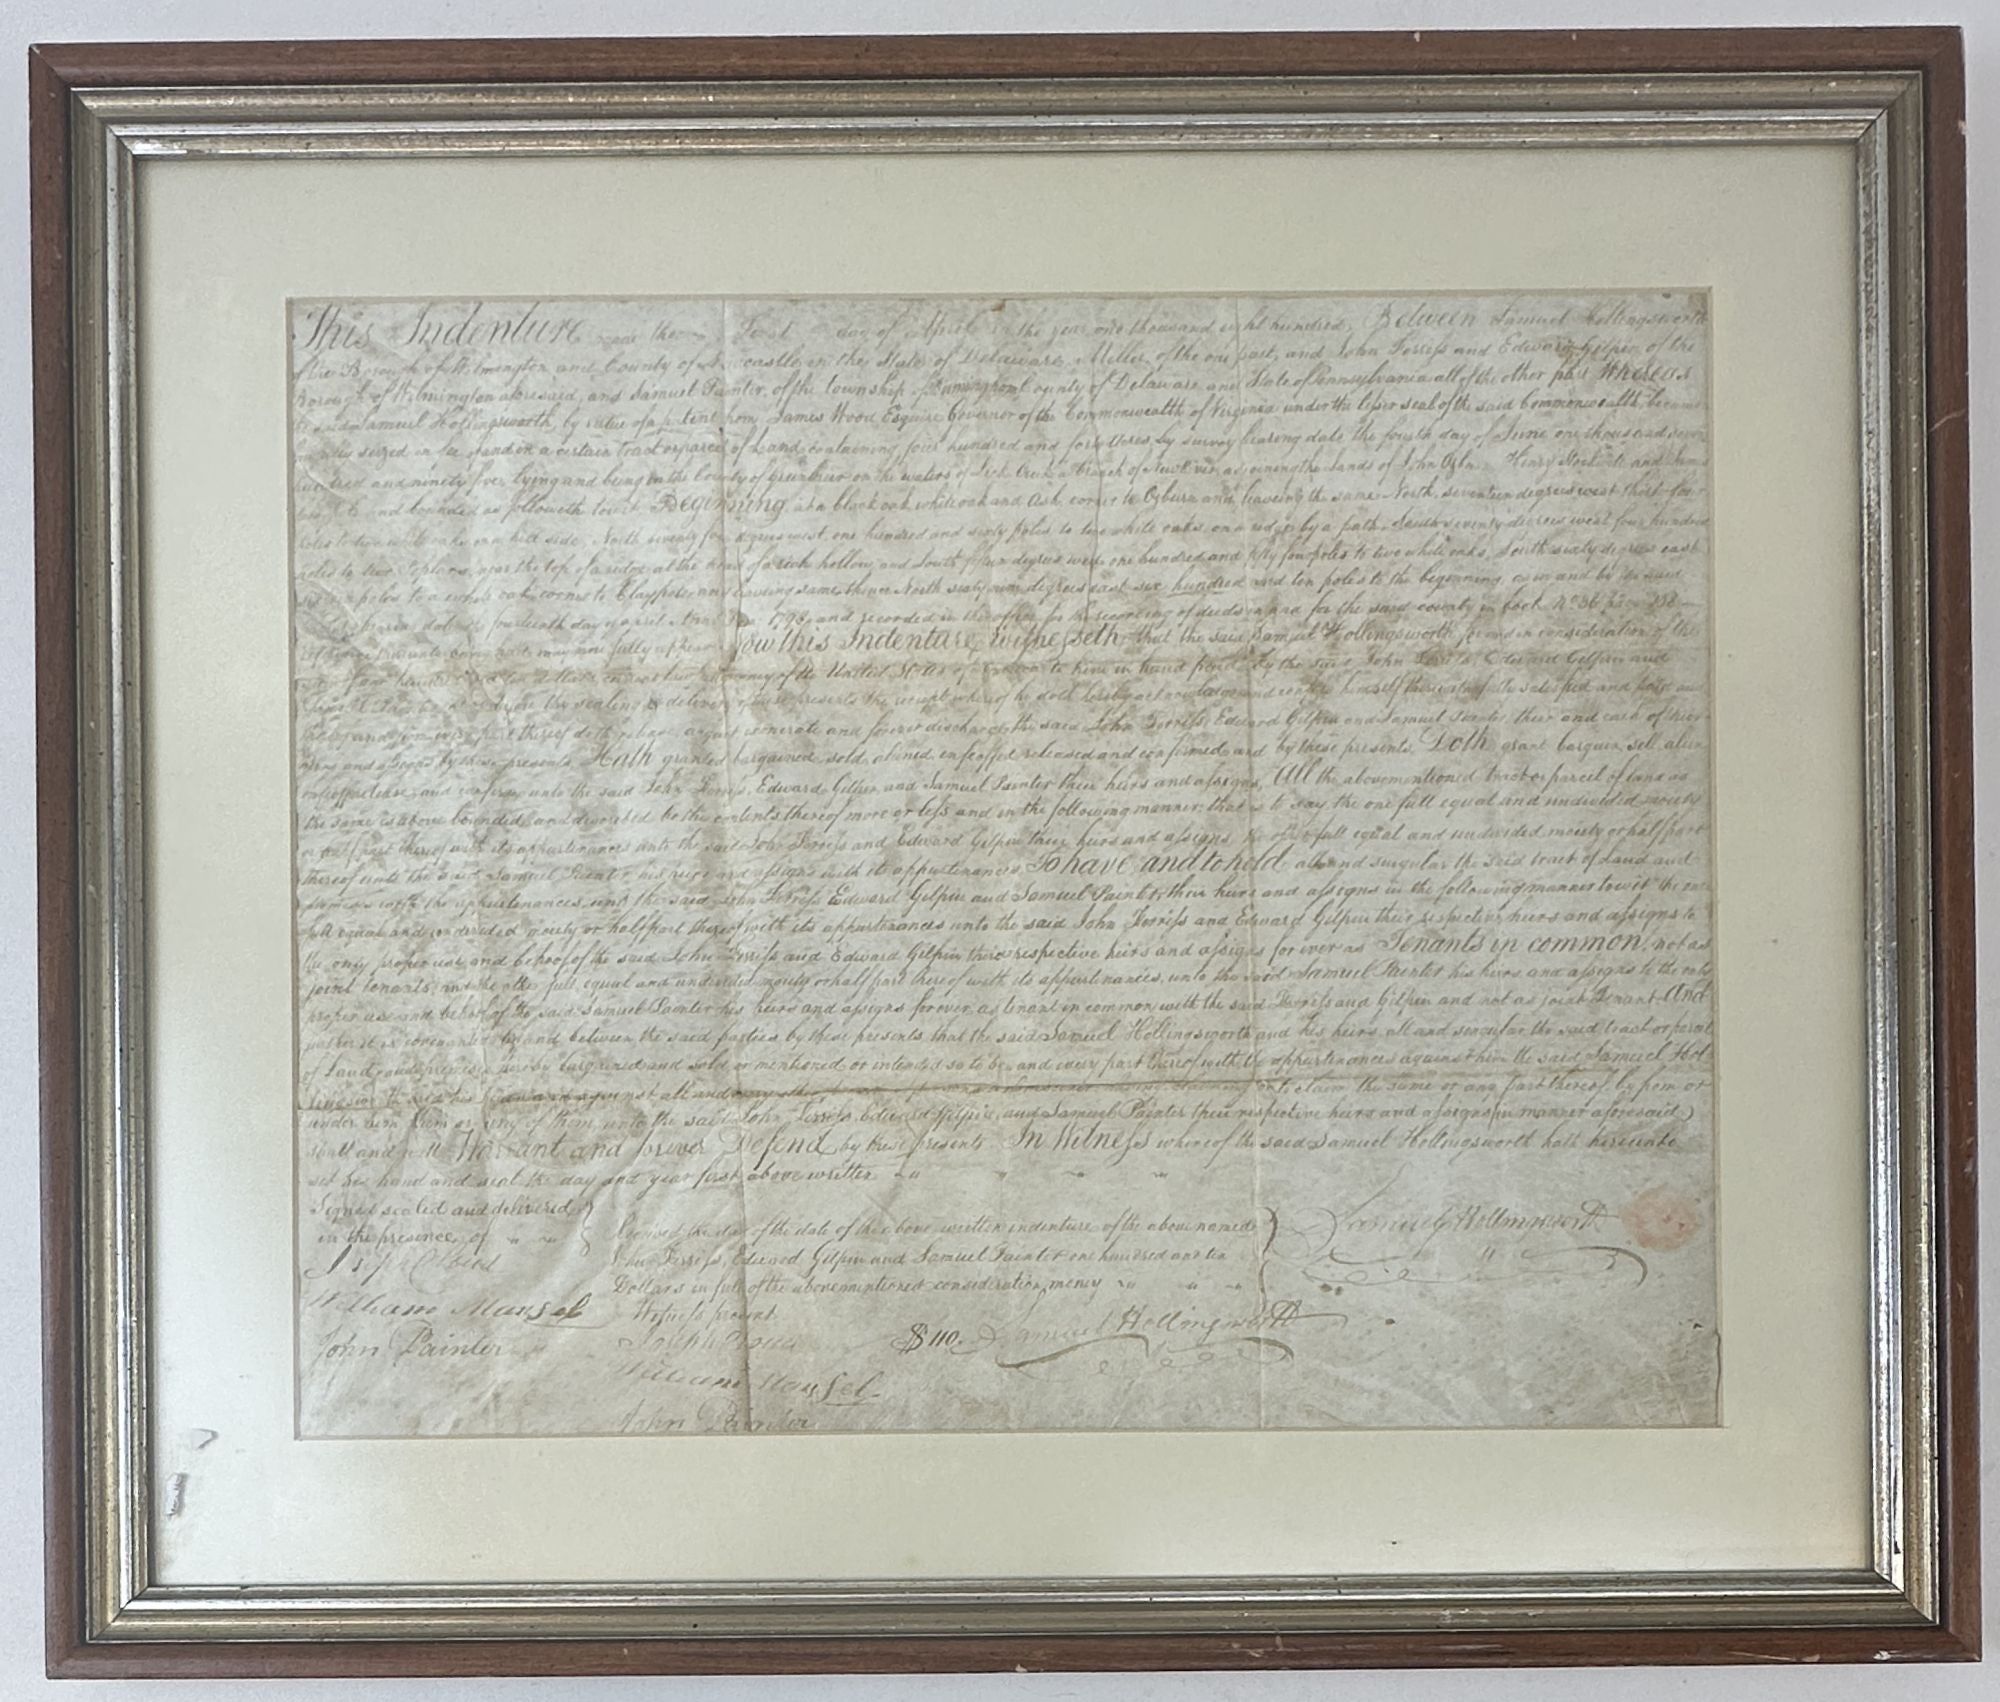 This Indenture made the First day of April in the year one thousand eight hundred, Between Samuel Hollingsworth
of the Borough of Wilmington and County of Newcastle, in the State of Delaware, Miller, of the one part, and John Ferriss and Edward Gilpin of the
Borough of Wilmington aforesaid, and Samuel Painter, of the township of Birmingham County of Delaware and State of Pennsylvania all of the other part Whereas
the said Samuel Hollingsworth, by virtue of a patent from James Wood Esquire Governor of the Commonwealth of Virginia under the lesser seal of the said Commonwealth, became
seized in fee of and in a certain tract or parcel of Land, containing four hundred and forty Acres, by survey bearing date the fourth day of June one thousand seven
hundred and ninety five, lying and being in the County of Greenbrier on the waters of Lick Creek a branch of New River, adjoining the Lands of John Henry and
and bounded as followeth towit Beginning at a black oak white oak and Ash corner to Ogburn and leaveing the same North, seventeen degrees west thirty four
poles to two white oaks on a hill side, North seventy four degrees west, one hundred and sixty poles to two white oaks, on a ridge by a path, South seventy degrees west four hundred
poles to two Poplars, near the top of a ridge at the head of a rich hollow, and South fifteen degrees west one hundred and fifty four poles to two white oaks, South sixty degrees east
poles to a white oak corner to Claypoler and leaveing same thence North sixty nine degrees east six hundred and ten poles to the beginning, as in and by the said
bearing date the fourteenth day of april Anno 1796, and recorded in the office for the recording of deeds in and for the said county in book No 36
may more fully appear Now this Indenture witnesseth, that the said Samuel Hollingsworth for and in consideration of the
sum of one hundred and ten dollars lawful money of the United States of America to him in hand paid by the said John Ferriss, Edward Gilpin and
Samuel Painter at or before the sealing & delivery of these presents the receipt whereof he doth hereby acknowledge and confess himself therewith fully satisfied and paid and
thereof and from every part thereof doth release, acquit exonerate and forever discharge the said John Ferriss, Edward Gilpin and Samuel Painter, their and each of their
heirs and assigns by these presents, Hath granted bargained, sold, aliened, enfeoffed released and confirmed and by these presents, Doth grant bargain, sell, alien
enfeoff release and confirm unto the said John Ferriss, Edward Gilpin and Samuel Painter their heirs and assigns, All the abovementioned tract or parcel of land as
the same is above bounded and described be the contents thereof more or less and in the following manner, that is to say, the one full equal and undivided moiety
or half part thereof with its appurtenances unto the said John Ferriss and Edward Gilpin their heirs and assigns the other full equal and undivided moiety or half part
thereof unto the said Samuel Painter his heirs and assigns with its appurtenances, To have and to hold all and singular the said tract of Land and
premises with the appurtenances, unto the said John Ferriss Edward Gilpin and Samuel Painter, their heirs and assigns in the following manner to wit the one
full equal and undivided moiety or half part thereof with its appurtenances unto the said John Ferriss and Edward Gilpin their respective heirs and assigns to
the only proper use and behoof of the said John Ferriss and Edward Gilpin their respective heirs and assigns for ever as Tenants in common, not as
joint tenants, and the other full equal and undivided moiety or half part thereof with its appurtenances, unto the said Samuel Painter his heirs and assigns to the only
proper use and behoof of the said Samuel Painter his heirs and assigns forever, as tenant in common with the said Ferriss and Gilpin and not as joint Tenant And
it is covenanted by and between the said parties by these presents, that the said Samuel Hollingsworth and his heirs all and singular the said tract or parcel
of Land and premises hereby bargained and sold or mentioned or intended so to be, and every part thereof with the appurtenances against him the said Samuel Hol-
lingsworth and his heirs and against all and every other person or persons whomsoever claiming or to claim the same or any part thereof, by from or
under him them or any of them, unto the said John Ferriss, Edward Gilpin, and Samuel Painter their respective heirs and assigns (in manner aforesaid)
shall and will Warrant and forever Defend by these presents In Witness whereof the said Samuel Hollingsworth hath hereunto
set his hand and seal the day and year first above written
Signed sealed and delivered
in the presence of
Joseph
William Mansel
John Painter
Received the day of the date of the above written indenture of the above named
John Ferriss, Edward Gilpin and Samuel Painter one hundred and ten
Dollars in full of the abovementioned consideration money
Witness present
Joseph
William Mansel
John Painter
Samuel Hollingsworth
$110. Samuel Hollingsworth